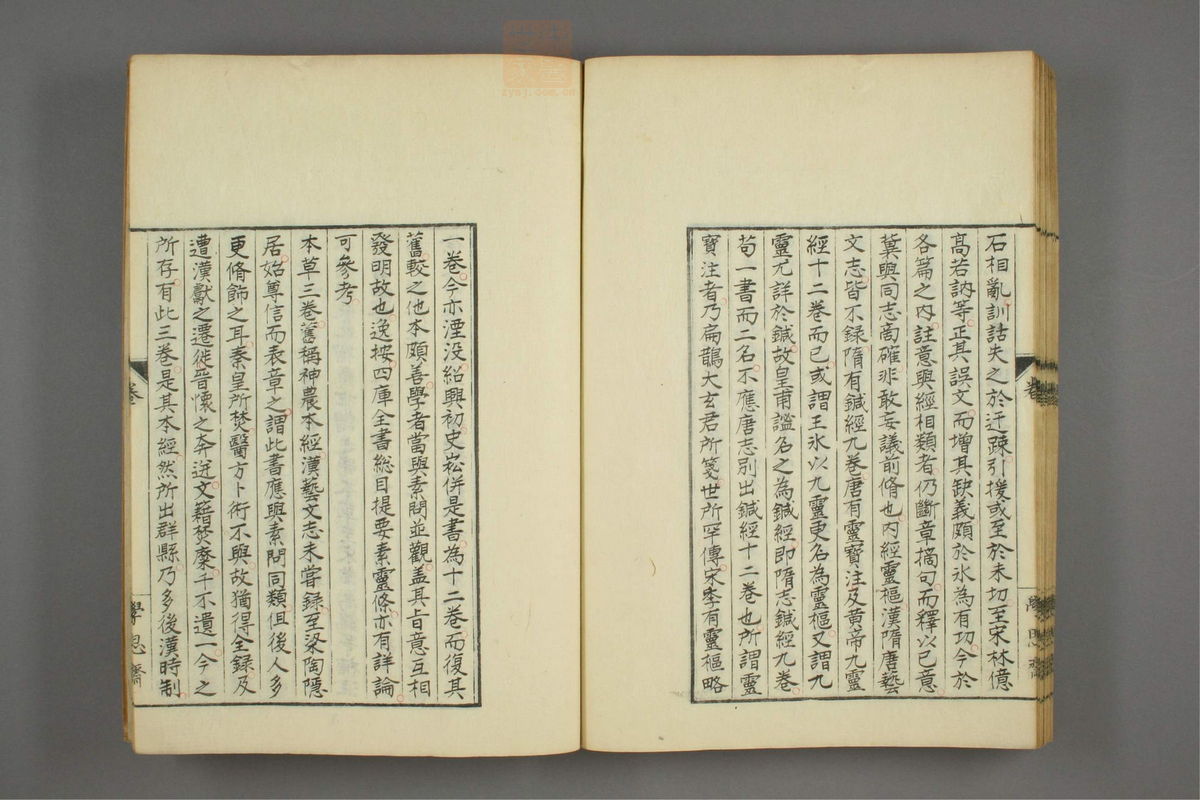 石相亂訓詁失之於迂疎引援或至於未切至宋林億
高若訥等正其誤文而增其缺義頗於冰為有功今於
各篇之內註意與經相類者仍斷章摘句而釋以己意
冀與同志商確非敢妄議前脩也內經靈樞漢隋唐藝
文志皆不錄隋有鍼經九卷唐有靈寶注及黃帝九靈
經十二卷而已或謂王冰以九靈更名為靈樞又謂九
靈尤詳於鍼故皇甫謐名之為鍼經即隋志鍼經九卷
苟一書而二名不應唐志別出鍼經十二卷也所謂靈
寶注者乃扁鵲大玄君所箋世所罕傳宋季有靈樞略
一卷今亦湮没紹興初史崧併是書為十二卷而復其
舊較之他本頗善學者當與素問並觀盖其旨意互相
發明故也逸按四庫全書総目提要素靈條亦有詳論
可參考
本草三卷舊稱神農本經漢藝文志未嘗錄至梁陶隱
居始尊信而表章之謂此書應與素問同類但後人多
更脩飾之耳秦皇所焚醫方卜術不與故猶得全録及
遭漢獻之遷徙晉懷之奔迸文籍焚糜千不遺一今之
所存有此三卷是其本經然所出群縣乃多後漢時制
卷
學思齋
zysj.com.cn